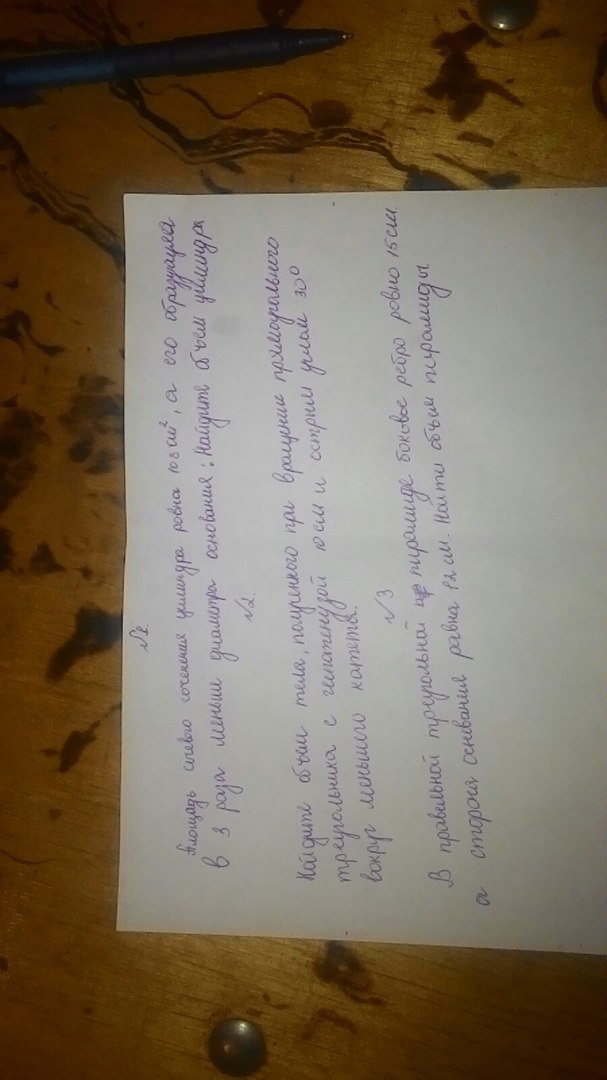 №1
Площадь осевого сечения цилиндра равна 108 см², а его образующая
в 3 раза меньше диаметра основания. Найдите объем цилиндра
№2.
Найдите объем тела, полученного при вращении прямоугольного
треугольника с гипотенузой 10 см и острым углом 30°
вокруг меньшего катета.
№3
В правильной треугольной пирамиде боковое ребро равно 15 см.
а сторона основания равна 12 см. Найти объем пирамиды